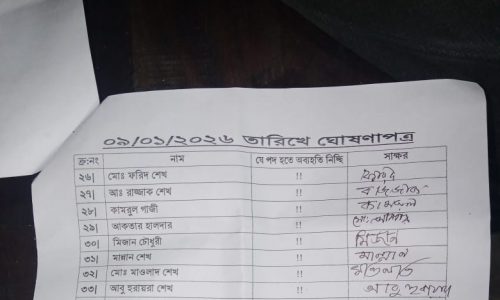 ০৯/০১/২০২৬ তারিখে ঘোষণাপত্র
ক্র:নং নাম যে পদ হতে অব্যহতি নিচ্ছি সাক্ষর
২৬| মোঃ ফরিদ শেখ !! ফরিদ
২৭| আঃ রাজ্জাক শেখ !! রাজ্জাক
২৮| কামরুল গাজী !! কামরুল
২৯| আকতার হালদার !!
৩০| মিজান চৌধুরী !! মিজান
৩১| মান্নান শেখ !! মান্নান
৩২| মোঃ মাওলাদ শেখ !!
৩৩| আবু হুরায়রা শেখ !! আবু